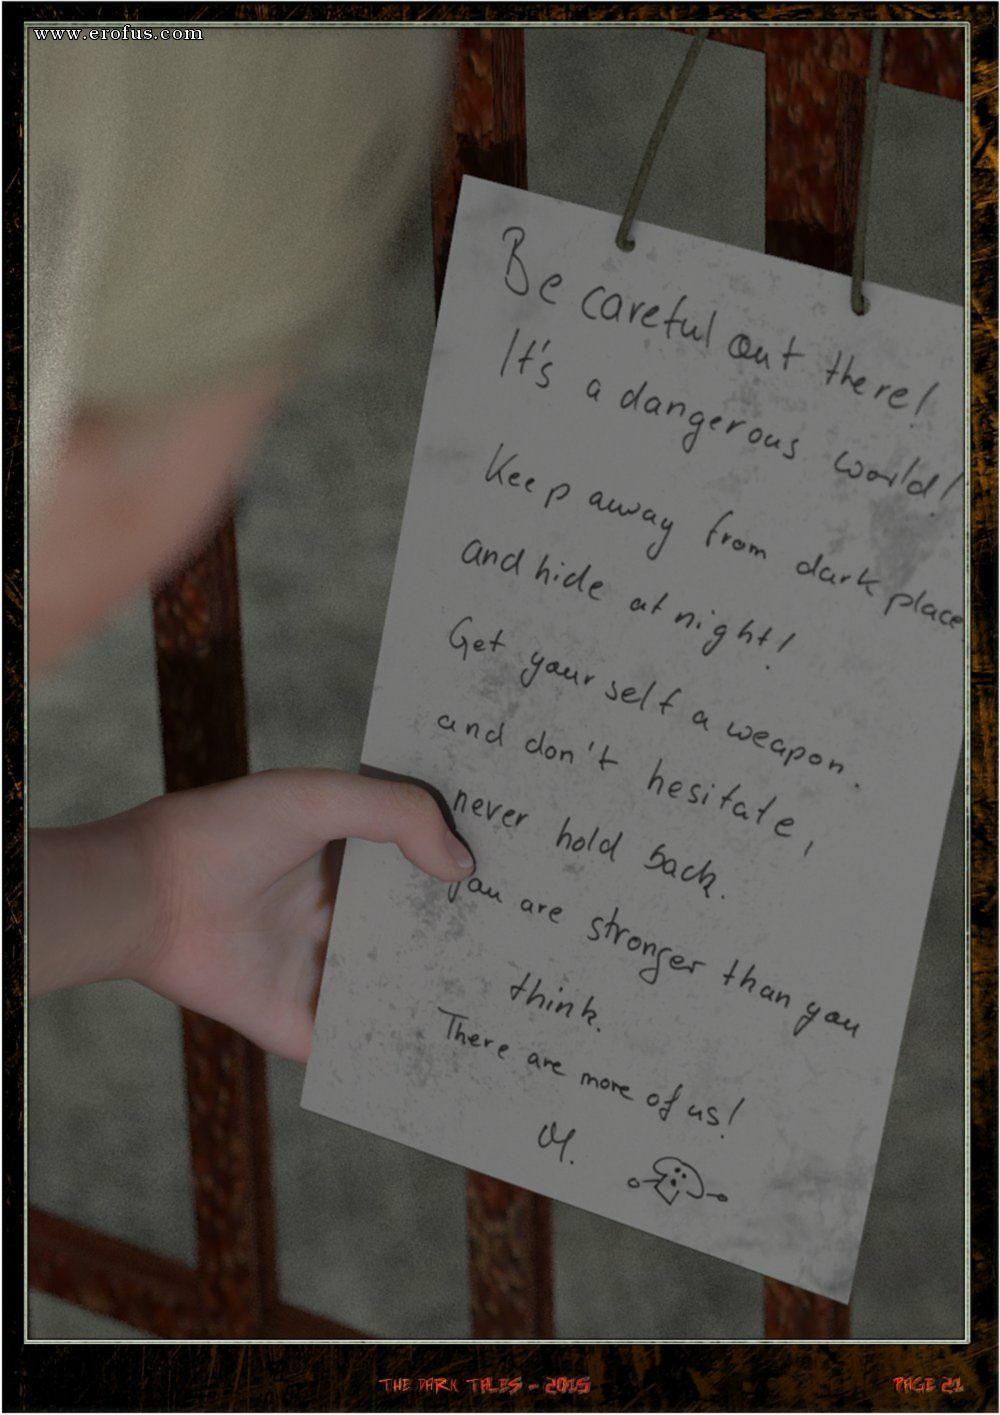 www.erofus.com
Be careful out there!
It's a dangerous world!
Keep away from dark place
and hide at night!
Get yourself a weapon.
and don't hesitate,
never hold back.
you are stronger than you
think.
There are more of us!
M.
THE DARK TALES - 2015
PAGE 21